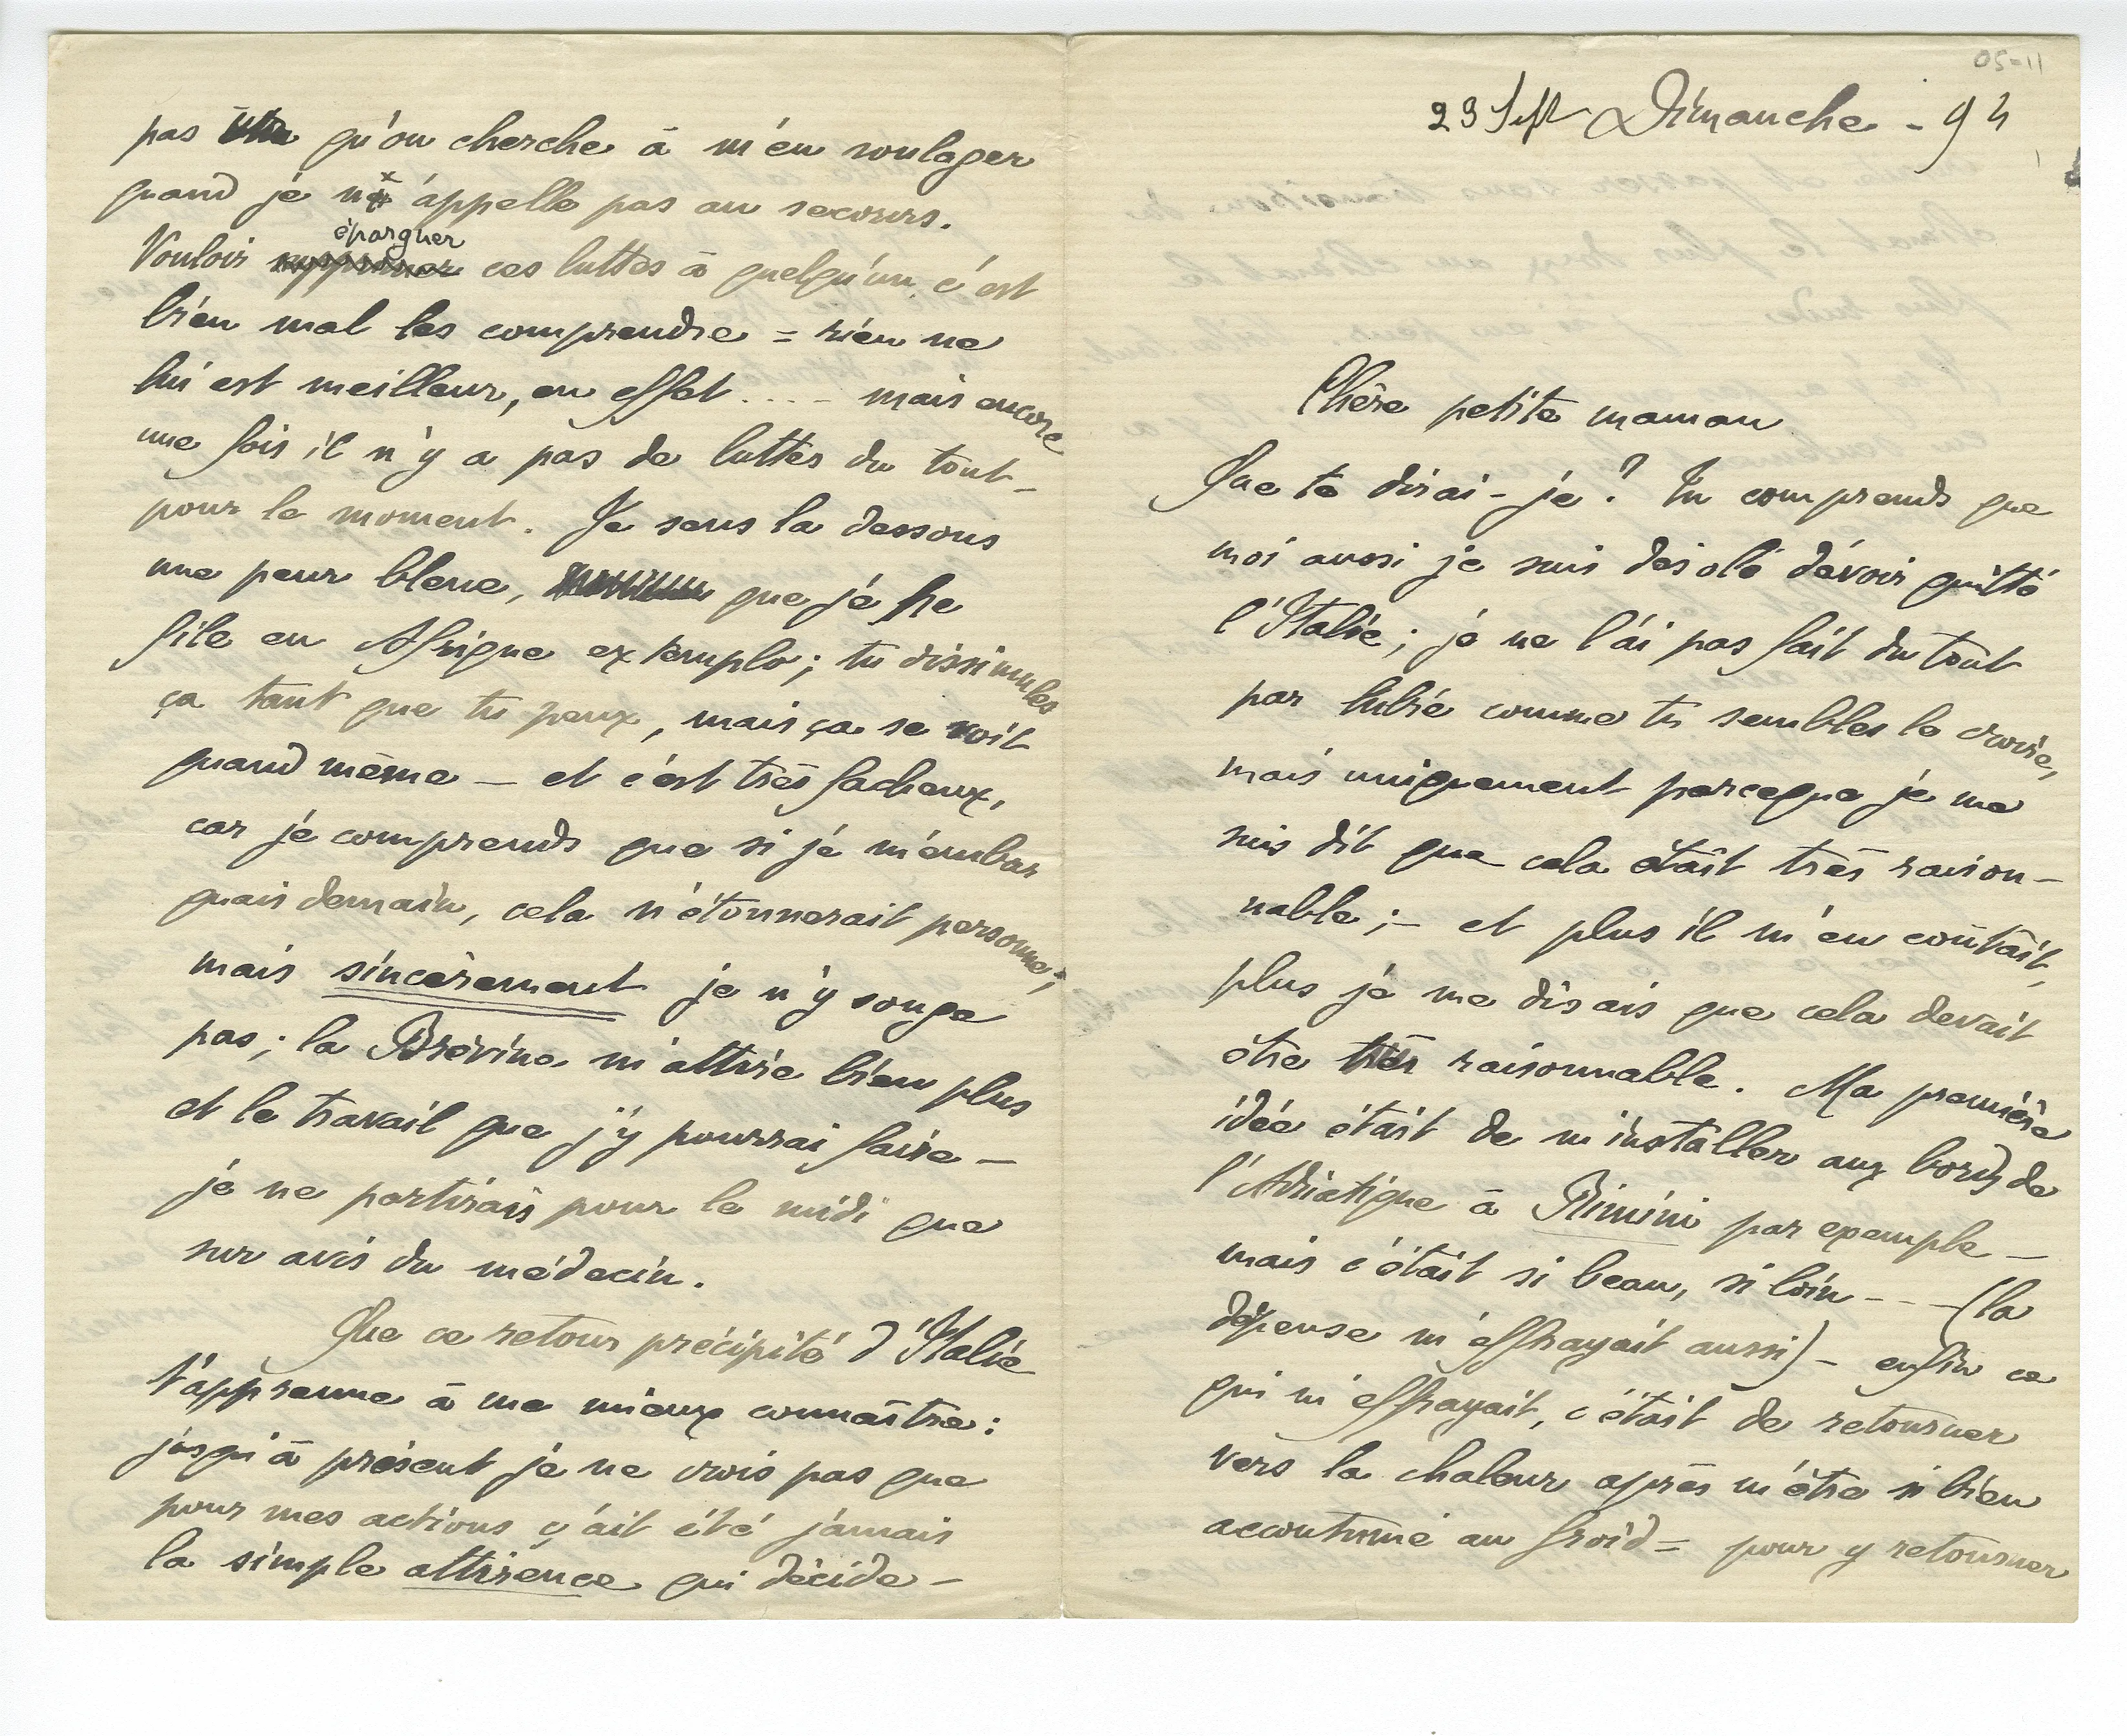 pas qu'on cherche à m'en soulager
quand je n'appelle pas au secours.
épargner
Vouloir supprimer ces luttes à quelqu'un c'est
bien mal les comprendre = rien ne
lui est meilleur, en effet .... mais encore
une fois il n'y a pas de luttes du tout –
pour le moment. Je sens la dessous
une peur bleue, que je ne
file en Afrique ex templo ; tu dissimules
ça tant que tu peux, mais ça se voit
quand même – et c'est très facheux,
car je comprends que si je m'embar
quais demain, cela n'étonnerait personne ;
mais sincèrement je n'y songe
pas ; la Brévine m'attire bien plus
et le travail que j'y pourrai faire –
je ne partirais pour le midi que
sur avis du médecin.
Que ce retour précipité d'Italie
t'apprenne à me mieux connaître :
jusqu'à présent je ne crois pas que
pour mes actions ç'ait été jamais
la simple attirence qui décide –
23 Sept Dimanche - 94
Chère petite maman
Que te dirai-je ? Tu comprends que
moi aussi je suis désolé d'avoir quitté
l'Italie ; je ne l'ai pas fait du tout
par lubie comme tu sembles le croire,
mais uniquement parceque je me
suis dit que cela était très raison-
nable ; – et plus il m'en coûtait,
plus je me disais que cela devait
être très raisonnable. Ma première
idée était de m'installer aux bords de
l'Adriatique à Rimini par exemple –
mais c'était si beau, si loin - - - (la
dépense m'effrayait aussi) – enfin ce
qui m'effrayait, c'était de retourner
vers la chaleur après m'être si bien
accoutumé au froid = pour y retourner